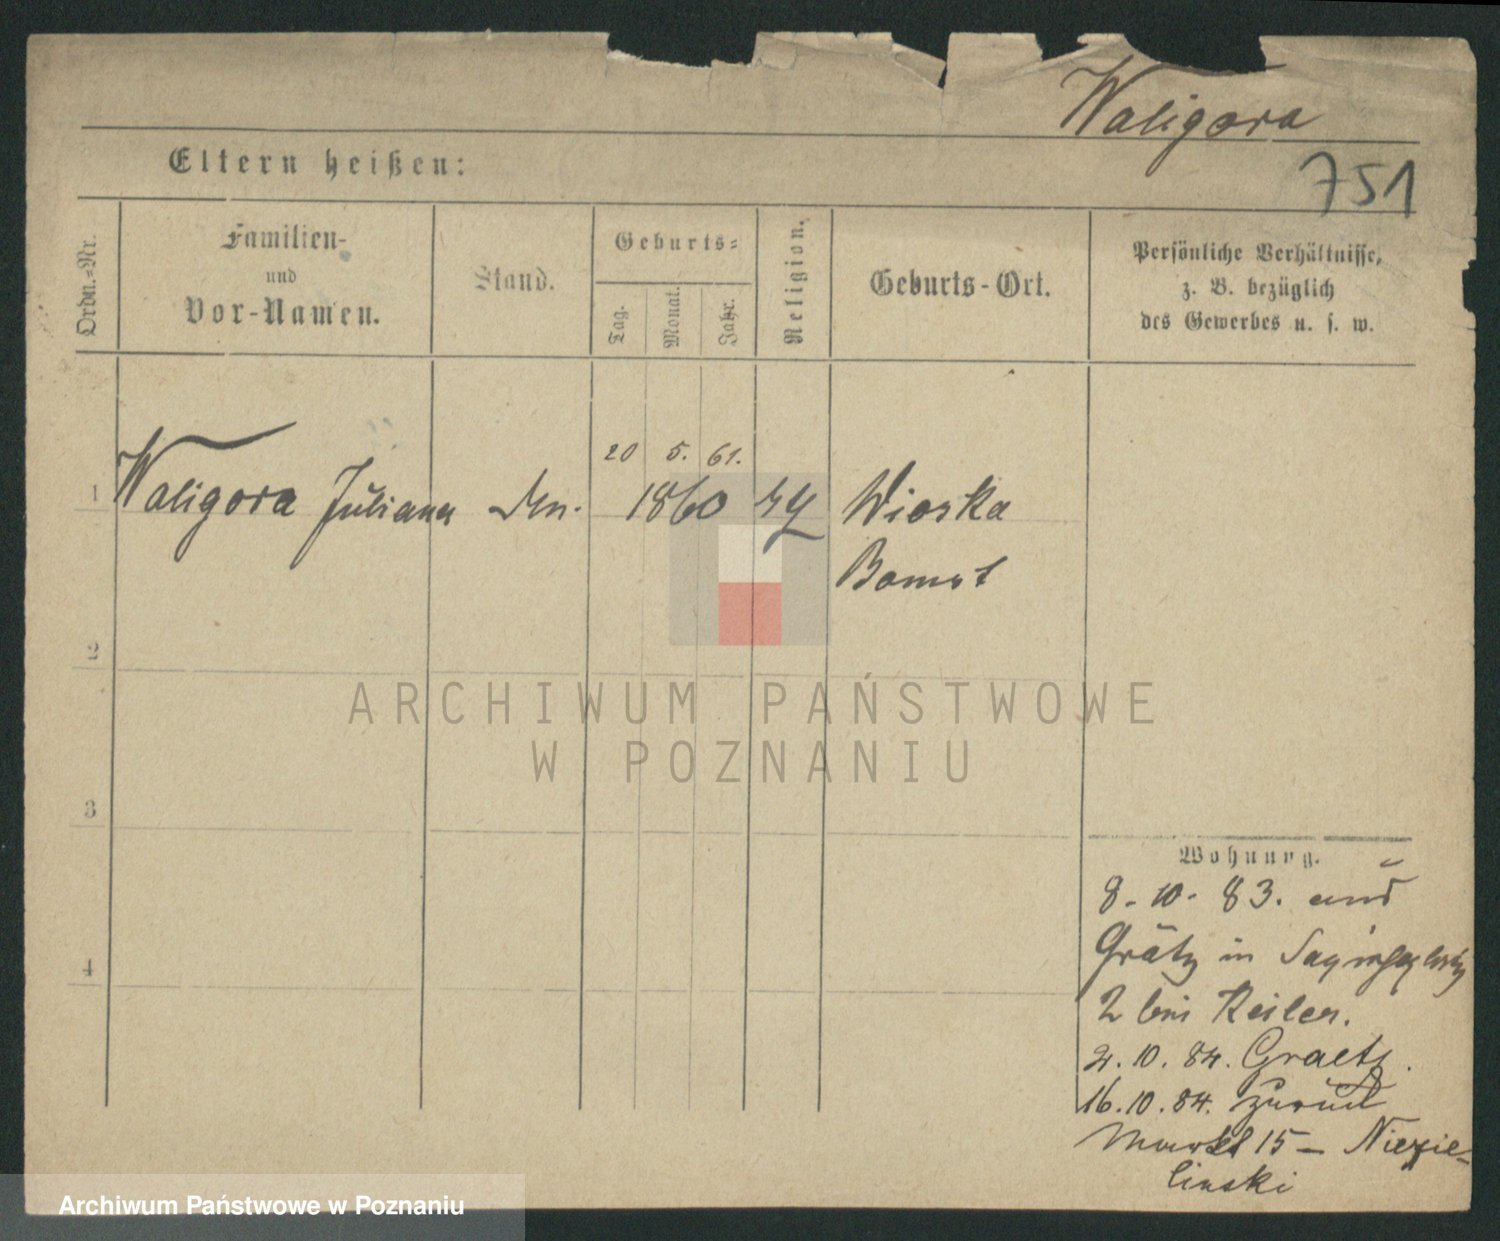 Waligora
Eltern heißen:
751
Ordn.-Nr.
Familien-
und
Vor-Namen.
Stand.
Geburts-
Tag.
Monat.
Jahr.
Religion.
Geburts-Ort.
Persönliche Verhältnisse,
z. B. bezüglich
des Gewerbes u. s. w.
20 5. 61.
1 Waligora Juliana 1860 Wioska
Bomst
2
ARCHIWUM PAŃSTWOWE
W POZNANIU
3
Wohnung.
8. 10. 83. aus
Grätz in
2 bei Keiler.
4
2. 10. 84. Graetz.
16. 10. 84. zurück
Markt 15 – Niezie-
linski
Archiwum Państwowe w Poznaniu